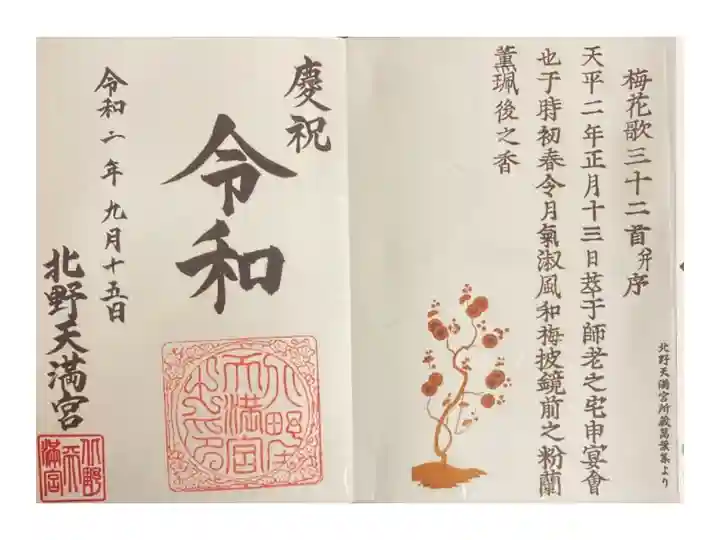 梅花歌三十二首并序
天平二年正月十三日萃于師老之宅申宴會
也于時初春令月氣淑風和梅披鏡前之粉蘭
薫珮後之香
北野天満宮所蔵萬葉集より
慶祝
令和
令和二年九月十五日
北野天満宮
北野天満宮之印
北野天満宮